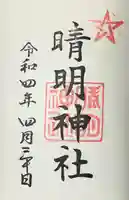 晴明神社
令和四年 四月三十日